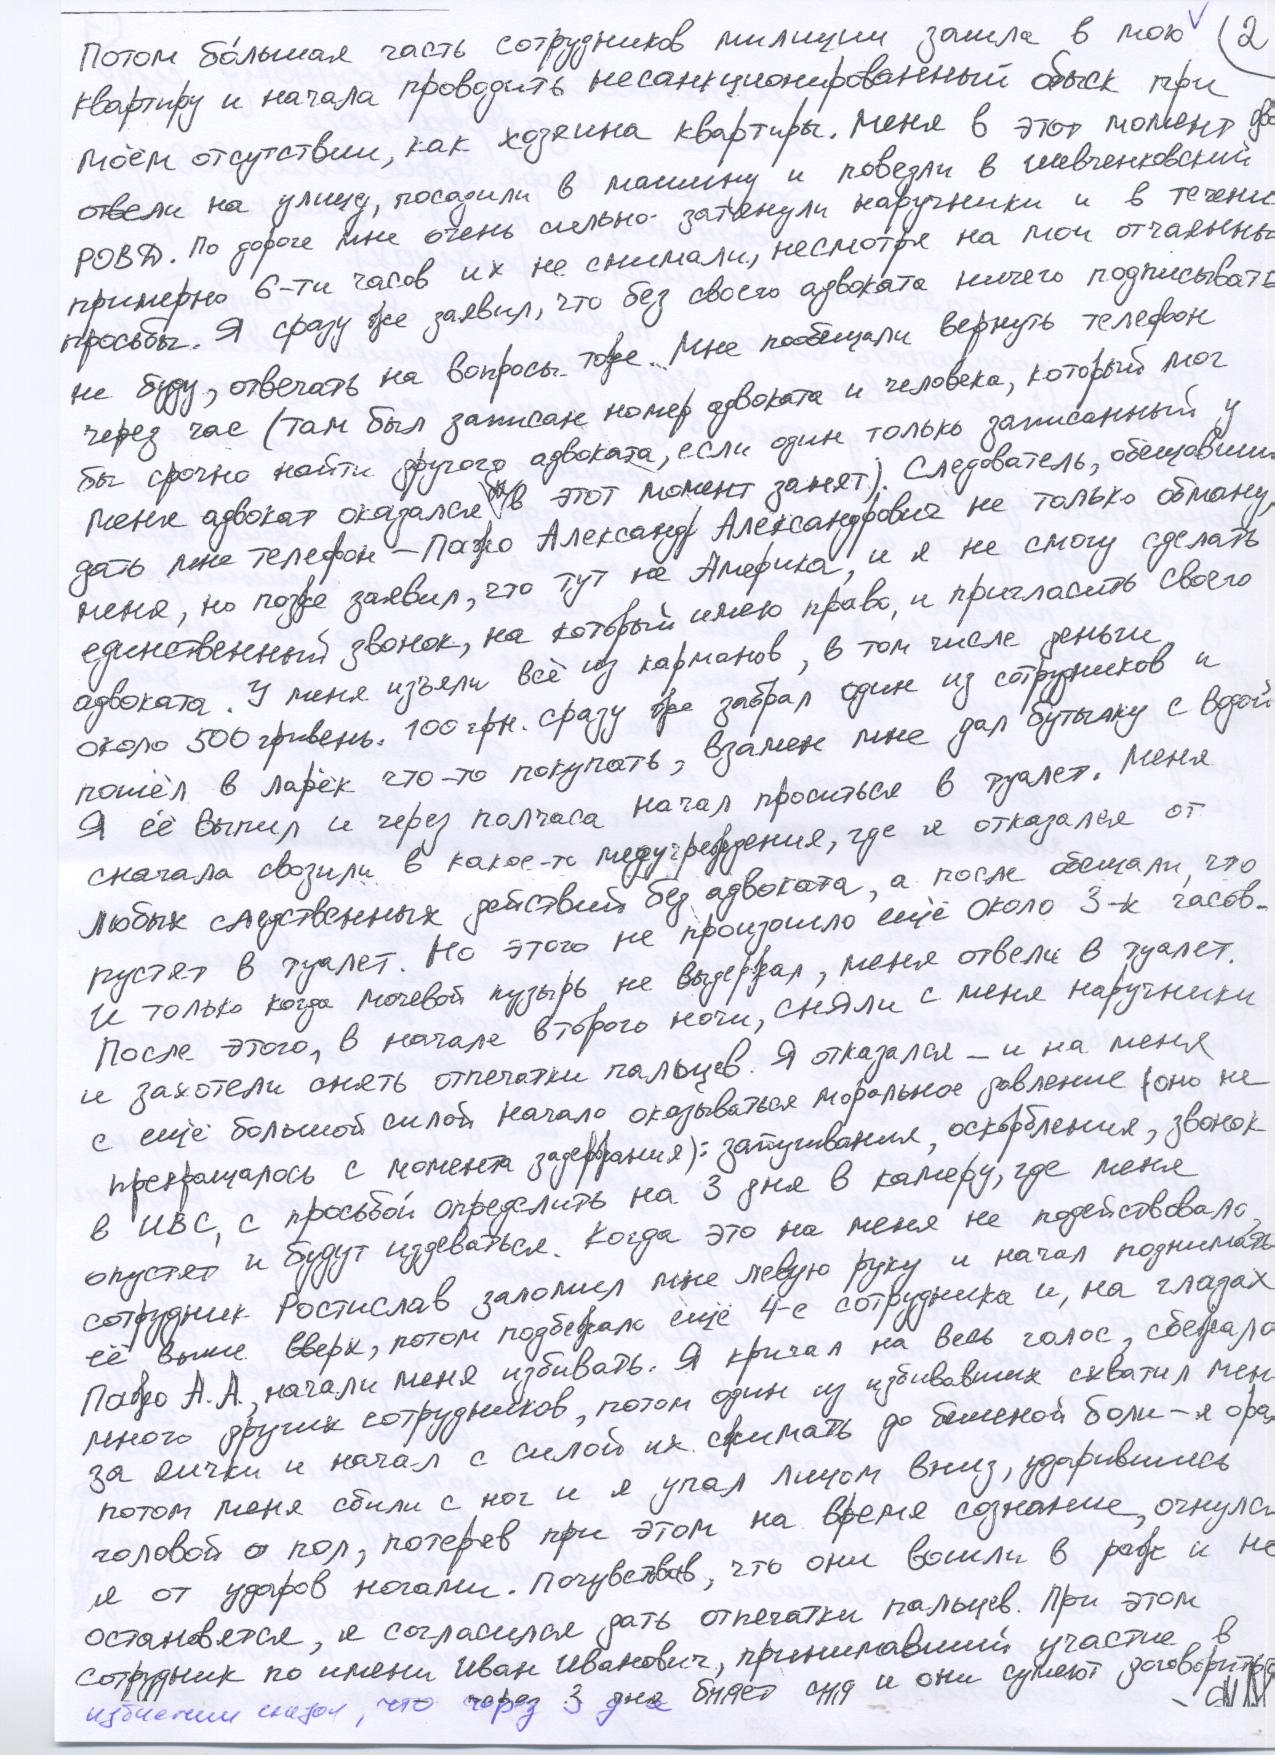 Потом бо́льшая часть сотрудников милиции зашла в мою (2
квартиру и начала проводить несанкционированный обыск при
моём отсутствии, как хозяина квартиры. Меня в этот момент
отвели на улицу, посадили в машину и повезли в Шевченковский
РОВД. По дороге мне очень сильно затянули наручники и в течение
примерно 6-ти часов их не снимали, несмотря на мои отчаянные
просьбы. Я сразу же заявил, что без своего адвоката ничего подписывать
не буду, отвечать на вопросы тоже. Мне пообещали вернуть телефон
через час (там был записан номер адвоката и человека, который мог
бы срочно найти другого адвоката, если один только записанный у
меня адвокат оказался бы в этот момент занят). Следователь, обещавший
дать мне телефон – Пазло Александр Александрович не только обманул
меня, но позже заявил, что тут не Америка, и я не смогу сделать
единственный звонок, на который имею право, и пригласить своего
адвоката. У меня изъяли всё из карманов, в том числе деньги
около 500 гривень. 100 грн. сразу же забрал один из сотрудников и
пошёл в ларёк что-то покупать, взамен мне дал бутылку с водой
Я её выпил и через полчаса начал проситься в туалет. Меня
сначала свозили в какое-то медучреждения, где я отказался от
любых следственных действий без адвоката, а после обещали, что
пустят в туалет. Но этого не произошло ещё около 3-х часов.
И только когда мочевой пузырь не выдержал, меня отвели в туалет.
После этого, в начале второго ночи, сняли с меня наручники
и захотели снять отпечатки пальцев. Я отказался – и на меня
с ещё большой силой начало оказываться моральное давление (оно не
прекращалось с момента задержания): запугивания, оскорбления, звонок
в ИВС, с просьбой определить на 3 дня в камеру, где меня
опустят и будут издеваться. Когда это на меня не подействовало,
сотрудник Ростислав заломил мне левую руку и начал поднимать
её выше вверх, потом подбежало ещё 4-е сотрудника и, на глазах
Пазло А.А., начали меня избивать. Я кричал на весь голос, сбежало
много других сотрудников, потом один из избивавших схватил меня
за яички и начал с силой их сжимать до бешеной боли – я орал
потом меня сбили с ног и я упал лицом вниз, ударившись
головой о пол, потеряв при этом на время сознание, очнулся
я от ударов ногами. Почувствовав, что они вошли в раж и не
остановятся, я согласился дать отпечатки пальцев. При этом
сотрудник по имени Иван Иванович, принимавший участие в
избиении сказал, что через 3 дня будет суд и они сумеют заговорить